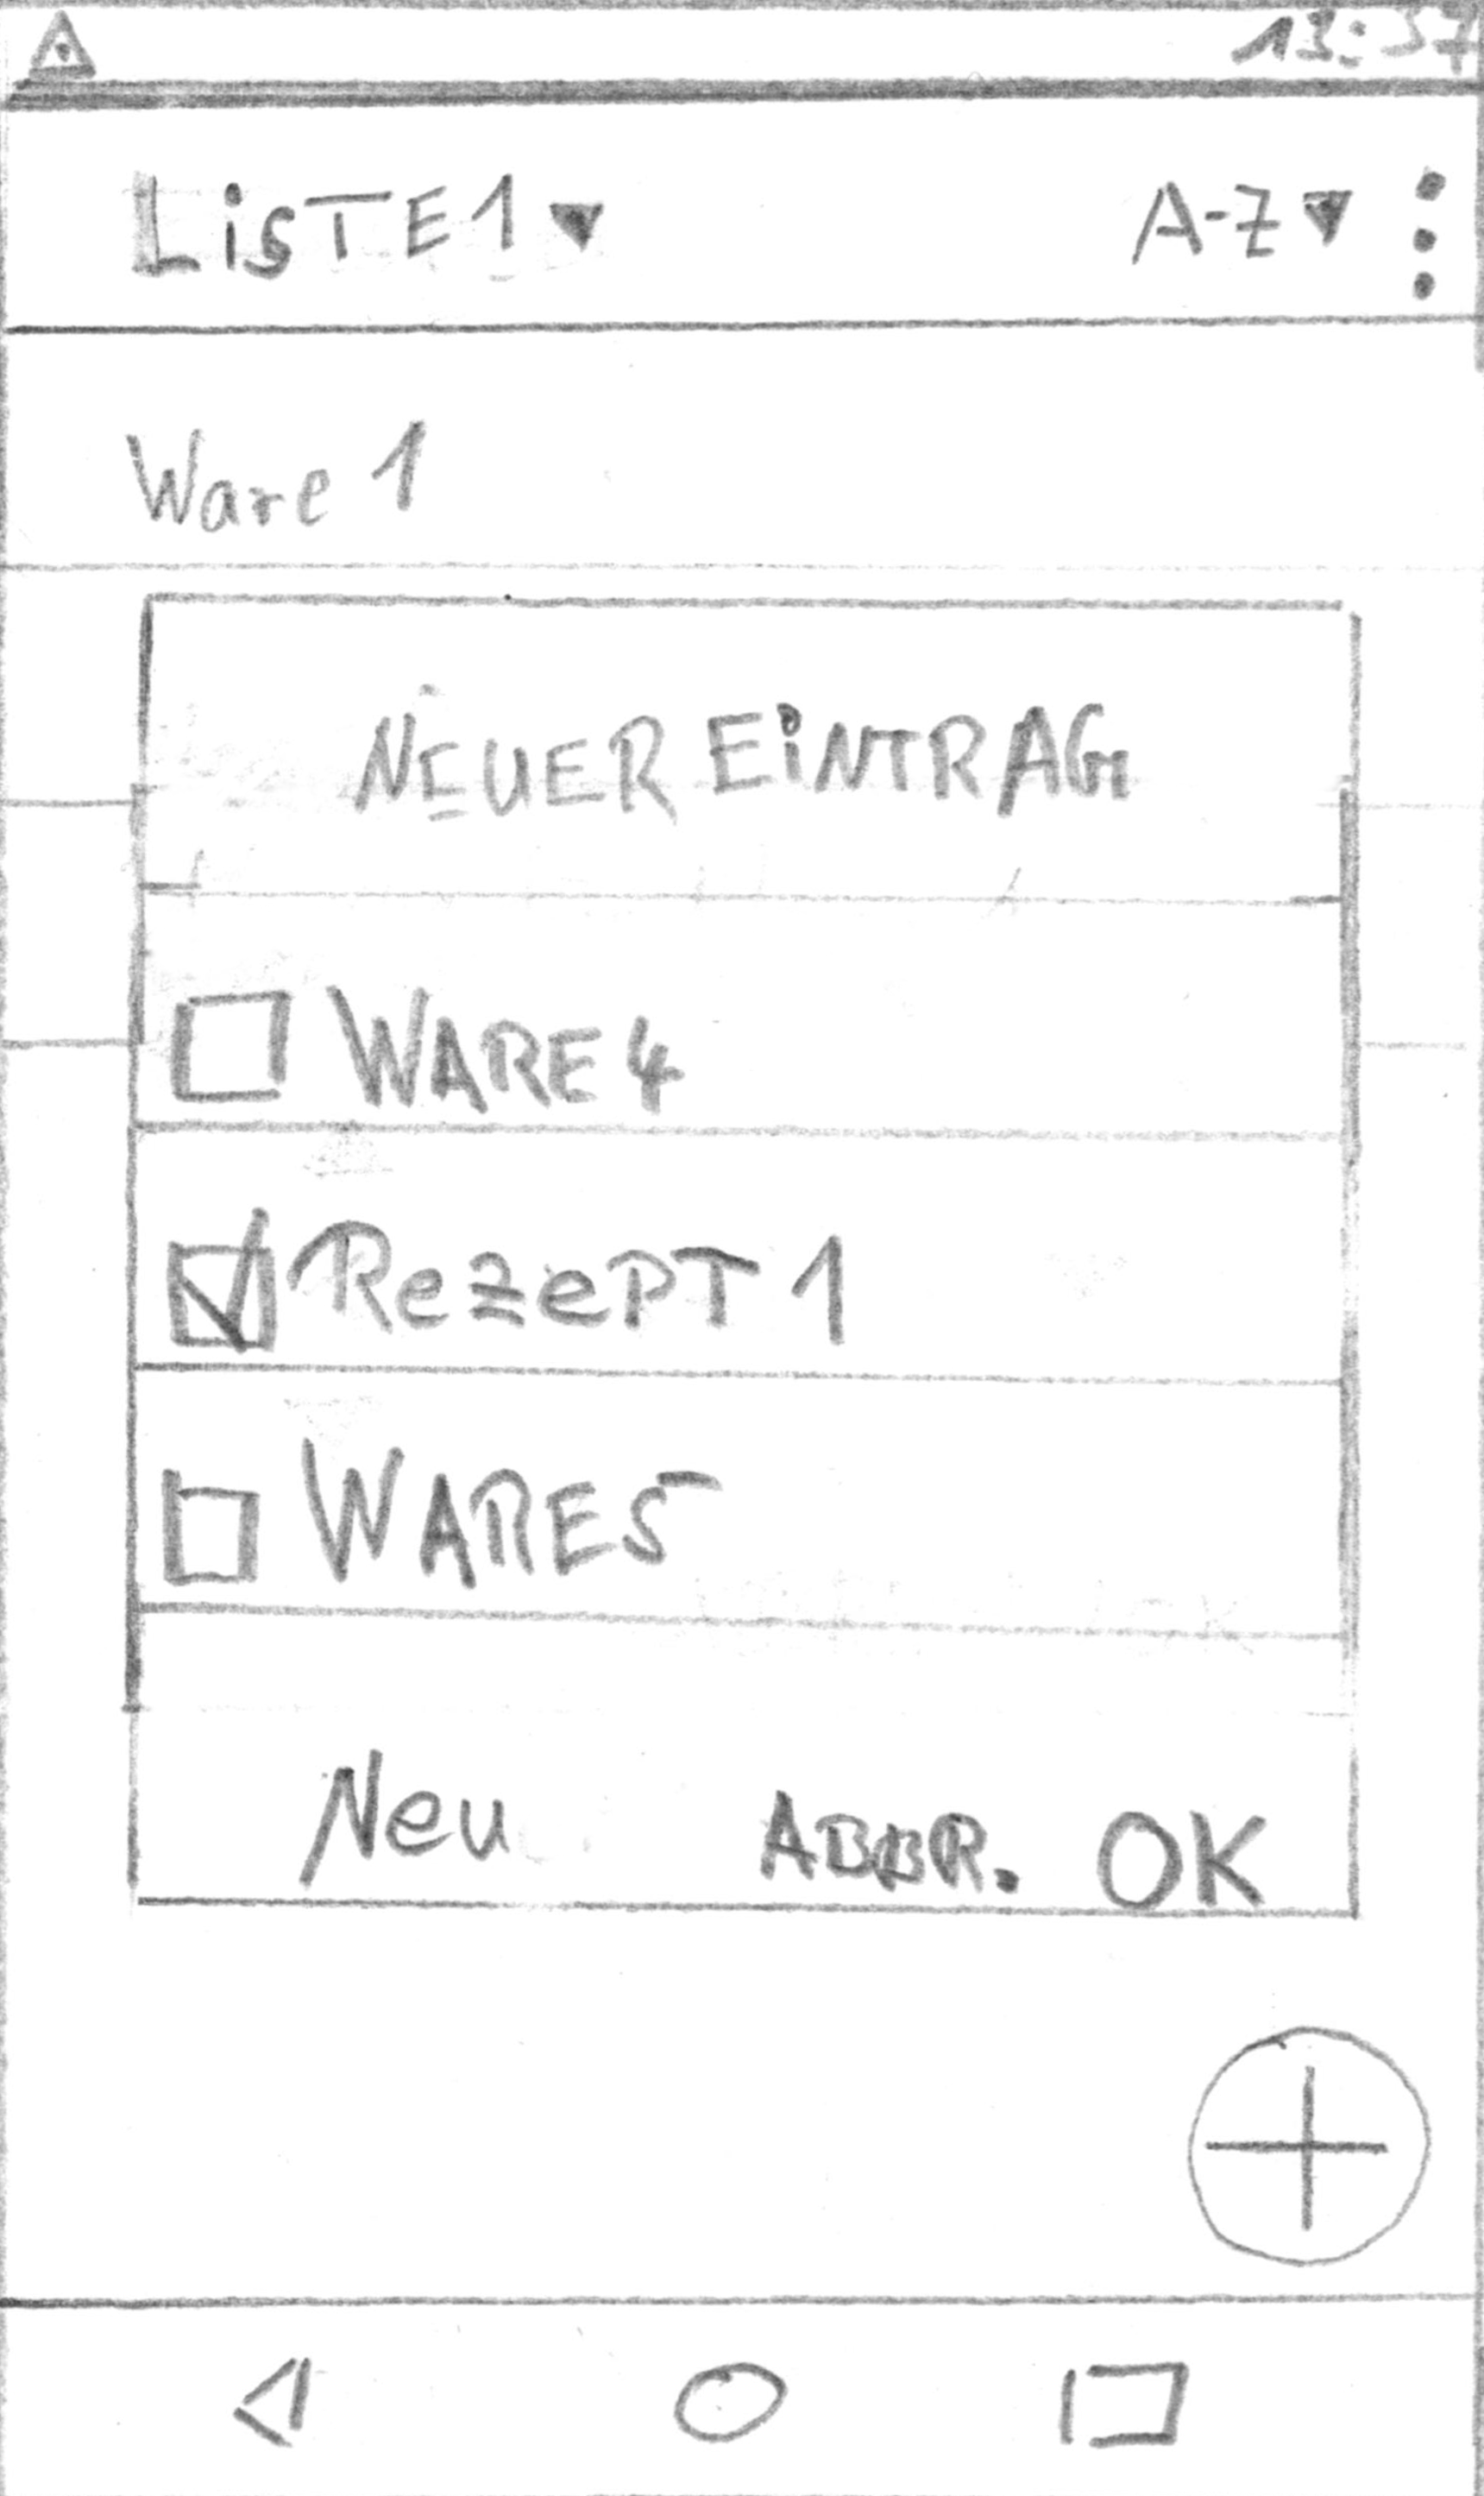 13:37
LiSTE1 A-Z
Ware 1
NEUER EiNTRAG
WARE 4
RezePT 1
WARE5
Neu ABBR. OK